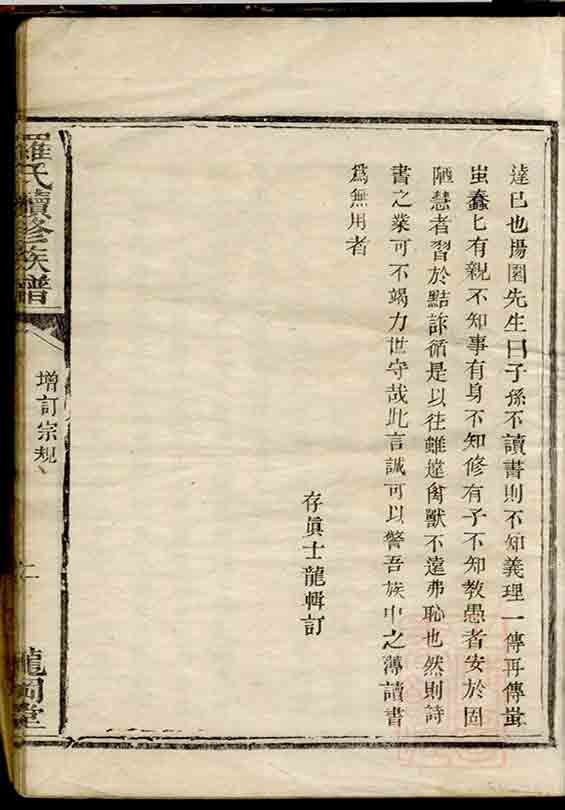 達已也楊園先生曰子孫不讀書則不知義理一傳再傳蚩
蚩蠢七有親不知事有身不知修有子不知教愚者安於固
陋慧者習於黠詐循是以往雖違禽獸不遠弗恥也然則詩
書之業可不竭力世守哉此言誠可以警吾族中之薄讀書
爲無用者
存眞士龍輯訂
羅氏續修族譜
增訂宗規
二
龍岡堂